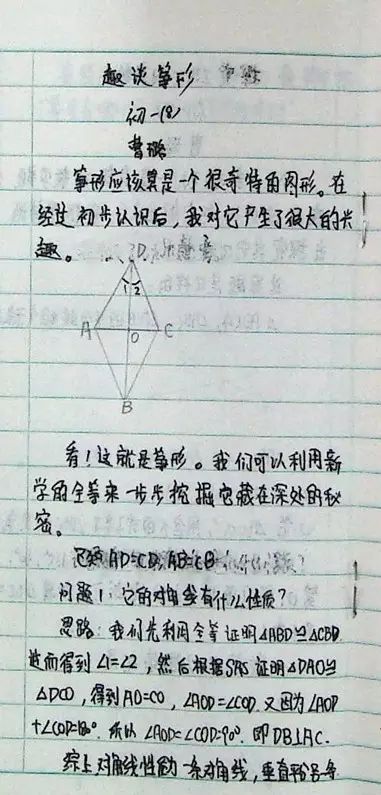 趣谈筝形
初一(8)
曹璐
筝形应该算是一个很奇特的图形。在
经过初步认识后,我对它产生了很大的兴
趣。
D
1 2
A O C
B
看!这就是筝形。我们可以利用新
学的全等来一步步挖掘它藏在深处的秘
密。
已知AD=CD,AB=CB
问题1:它的对角线有什么性质?
思路:我们先利用全等证明△ABD≌△CBD
进而得到∠1=∠2,然后根据SAS证明△DAO≌
△DCO,得到AO=CO,∠AOD=∠COD.又因为∠AOD
+∠COD=180°.所以∠AOD=∠COD=90°.即DB⊥AC.
综上对角线性质 一条对角线,垂直平分另一条